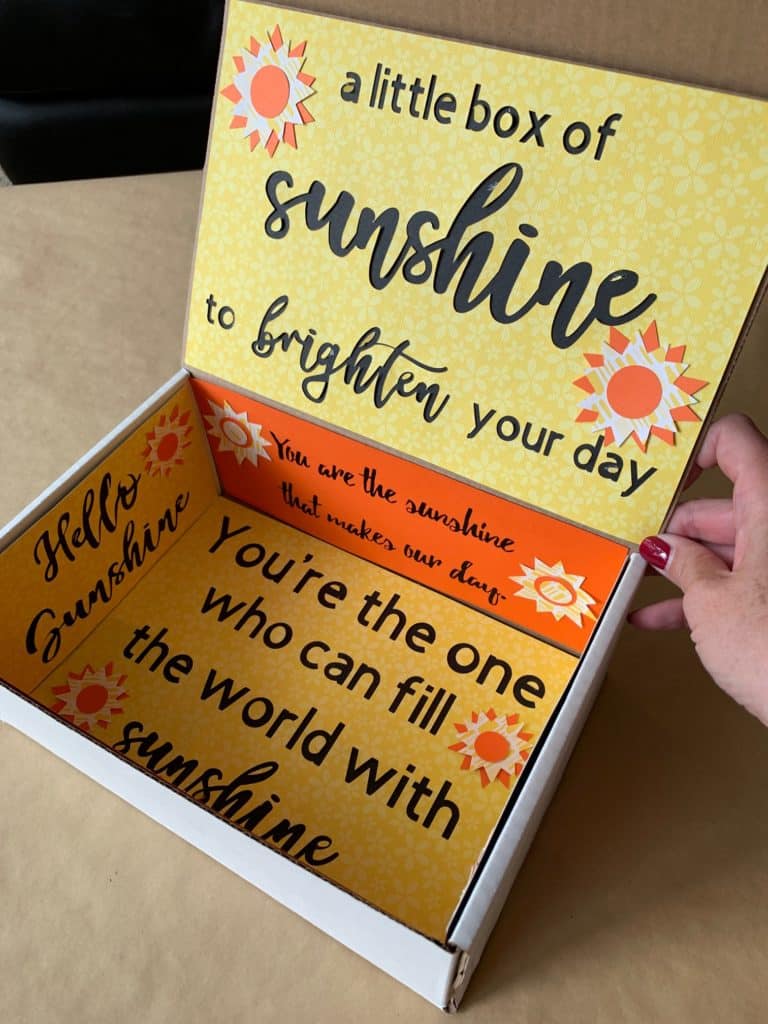 a little box of
sunshine
to brighten your day
You are the sunshine
that makes our day.
Hello
Sunshine
You're the one
who can fill
the world with
sunshine